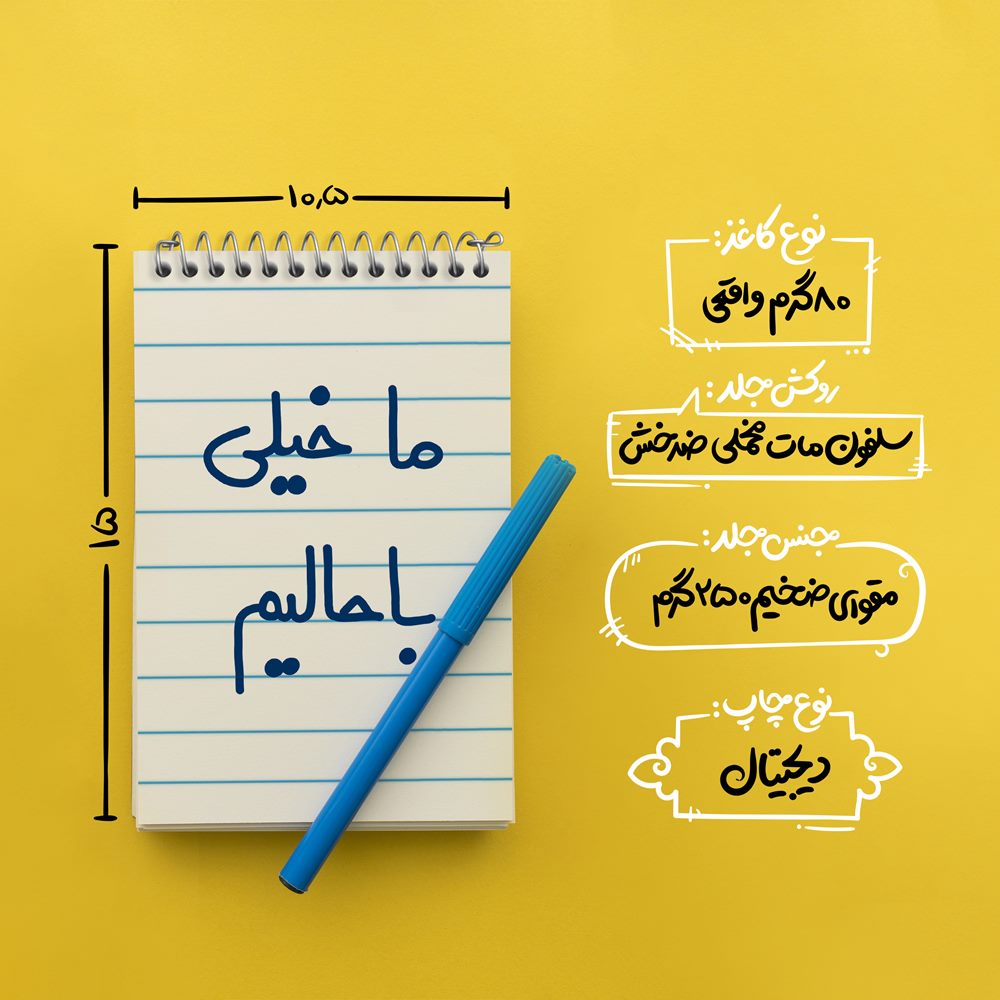 ۱۰٫۵
۱۵
ما خیلی
باحالیم
نوع کاغذ:
۸۰گرم واقعی
روکش مجلد:
سلفون مات مخملی ضدخش
جنس مجلد:
مقوای ضخیم ۲۵۰گرم
نوع چاپ:
دیجیتال